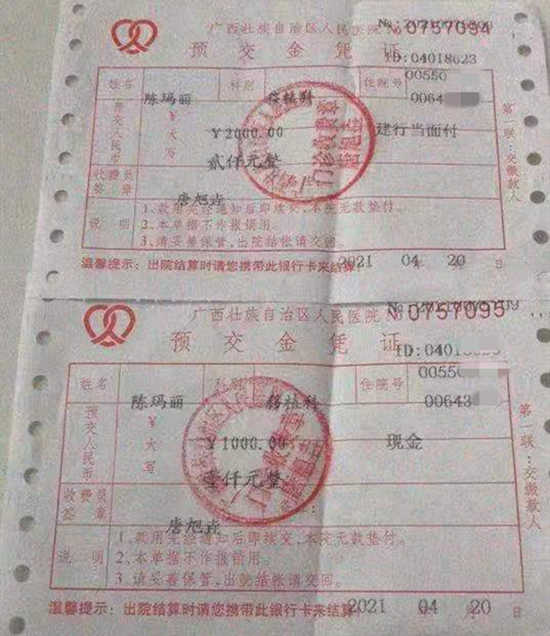 广西壮族自治区人民医院 №0757094
预交金凭证
ID:04018623
姓名 陈玛丽 科别 移植科 住院号 00550
00640
预交人民币 ￥ 大写 ￥2000.00 建行当面付
贰仟元整
收费员签章 唐旭垚
说明
1、款用完经通知后即续交,本院无款垫付。
2、本单据不作报销用。
3、请妥善保管,出院结帐请交回。
第一联:交缴款人
温馨提示:出院结算时请您携带此银行卡来结算 2021 年 04 月 20 日
广西壮族自治区人民医院 №0757095
预交金凭证
姓名 陈玛丽 科别 移植科 住院号 0055
00643
预交人民币 ￥ 大写 ￥1000.00 现金
壹仟元整
收费员签章 唐旭垚
说明
1、款用完经通知后即续交,本院无款垫付。
2、本单据不作报销用。
3、请妥善保管,出院结帐请交回。
第一联:交缴款人
温馨提示:出院结算时请您携带此银行卡来结算 2021 04 20 日